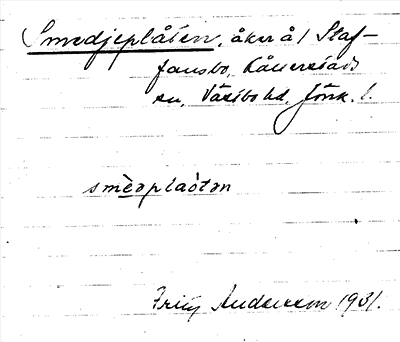 Smedjeplåten, åker å / Staf-
fansbo, Kållerstads
sn, Västbo hd, Jönk. l.
smèdplaòtən
Frity Andersson 1931.